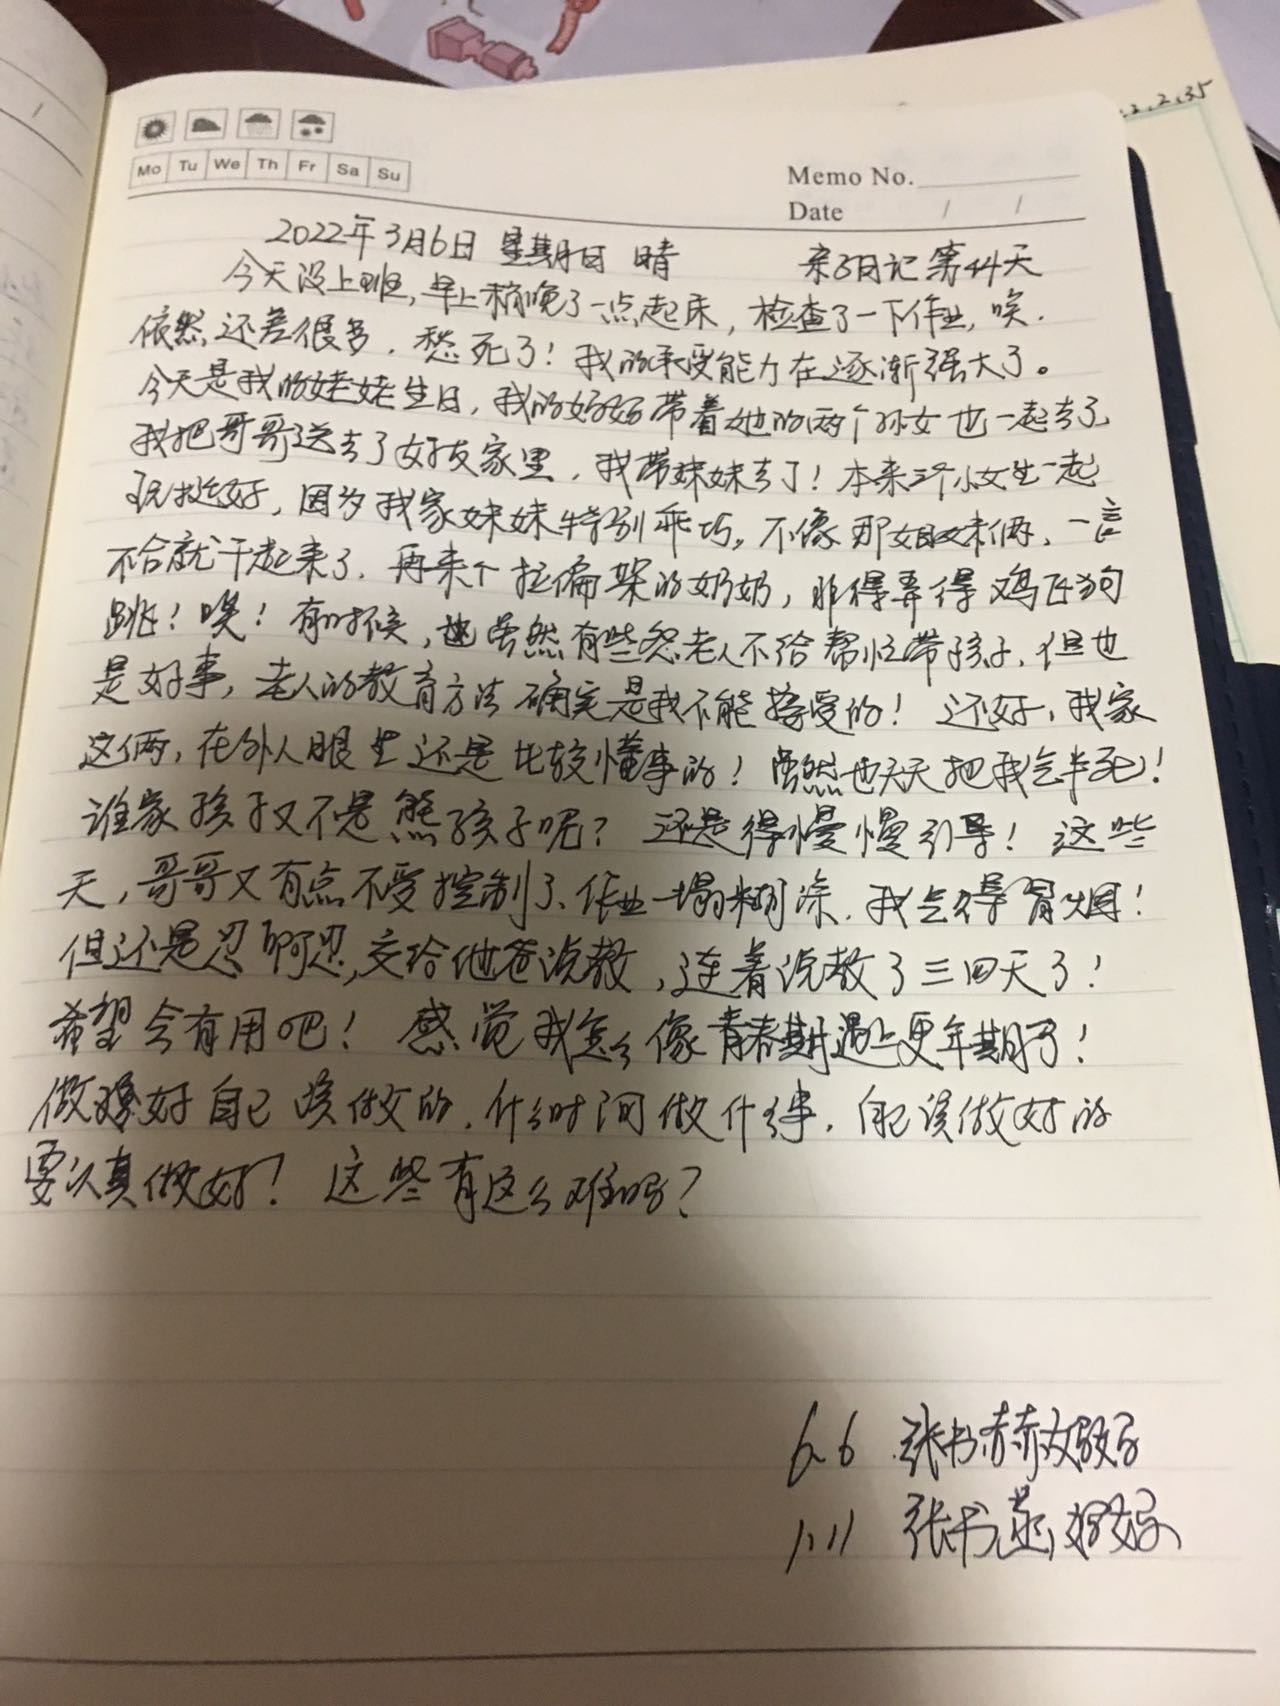 2.2.35
Mo Tu We Th Fr Sa Su
Memo No.
Date / /
2022年3月6日 星期日 晴 亲子日记第44天
今天没上班,早上稍晚了一点起床,检查了一下作业,唉.
依然还差很多.愁死了!我的承受能力在逐渐强大了。
今天是我的姥姥生日,我的妈妈带着她的两个孙女也一起去了
我把哥哥送去了好友家里,我带妹妹去了!本来三个小女生一起
玩挺好,因为我家妹妹特别乖巧。不像那姐妹俩、一言
不合就干起来了.再来个拉偏架的奶奶,非得弄得鸡飞狗
跳!唉!有时候,虽然有些怨老人不给帮忙带孩子,但也
是好事,老人的教育方法确实是我不能接受的!还好,我家
这俩,在外人眼里还是比较懂事的!虽然也天天把我气半死!
谁家孩子又不是熊孩子呢?还是得慢慢引导!这些
天,哥哥又有点不受控制了、作业一塌糊涂.我气得冒烟!
但还是忍啊忍,交给他爸说教,连着说教了三四天了!
希望会有用吧!感觉我怎么像青春期遇上更年期了!
做好自己该做的.什么时间做什么事.自己该做好的
要认真做好!这些有这么难吗?
6.6 张书赫
1.11 张书